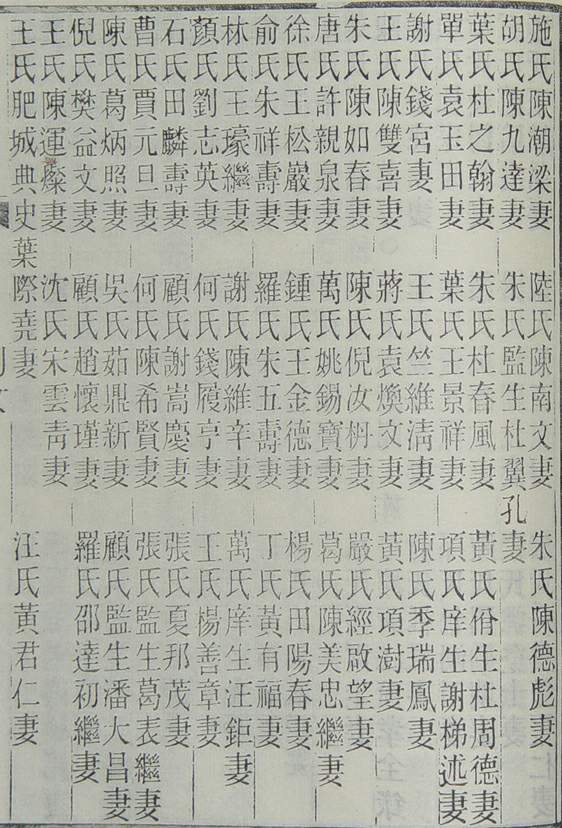 施氏陳潮梁妻　陸氏陳南文妻　朱氏陳德彪妻
胡氏陳九達妻　朱氏監生杜翼孔妻
葉氏杜之翰妻　朱氏杜春風妻　黃氏佾生杜周德妻
單氏袁玉田妻　葉氏王景祥妻　項氏庠生謝梯述妻
謝氏錢宮妻　王氏竺維淸妻　陳氏季瑞鳳妻
王氏陳雙喜妻　蔣氏袁煥文妻　黃氏項澍妻
朱氏陳如春妻　陳氏倪汝枬妻　嚴氏經啟望妻
唐氏許親泉妻　萬氏姚錫寶妻　葛氏陳美忠繼妻
徐氏王松巖妻　鍾氏王金德妻　楊氏田陽春妻
俞氏朱祥壽妻　羅氏朱五壽妻　丁氏黃有福妻
林氏王壕繼妻　謝氏陳維辛妻　萬氏庠生汪鉅妻
顏氏劉志英妻　何氏錢履亨妻　王氏楊善章妻
石氏田麟壽妻　顧氏謝嵩慶妻　張氏夏邦茂妻
曹氏賈元旦妻　何氏陳希賢妻　張氏監生葛表繼妻
陳氏葛炳照妻　吳氏茹鼎新妻　顧氏監生潘大昌妻
倪氏樊益文妻　顧氏趙懷瑾妻　羅氏邵達初繼妻
王氏陳運燦妻　沈氏宋雲靑妻
王氏肥城典史葉際堯妻　汪氏黃君仁妻